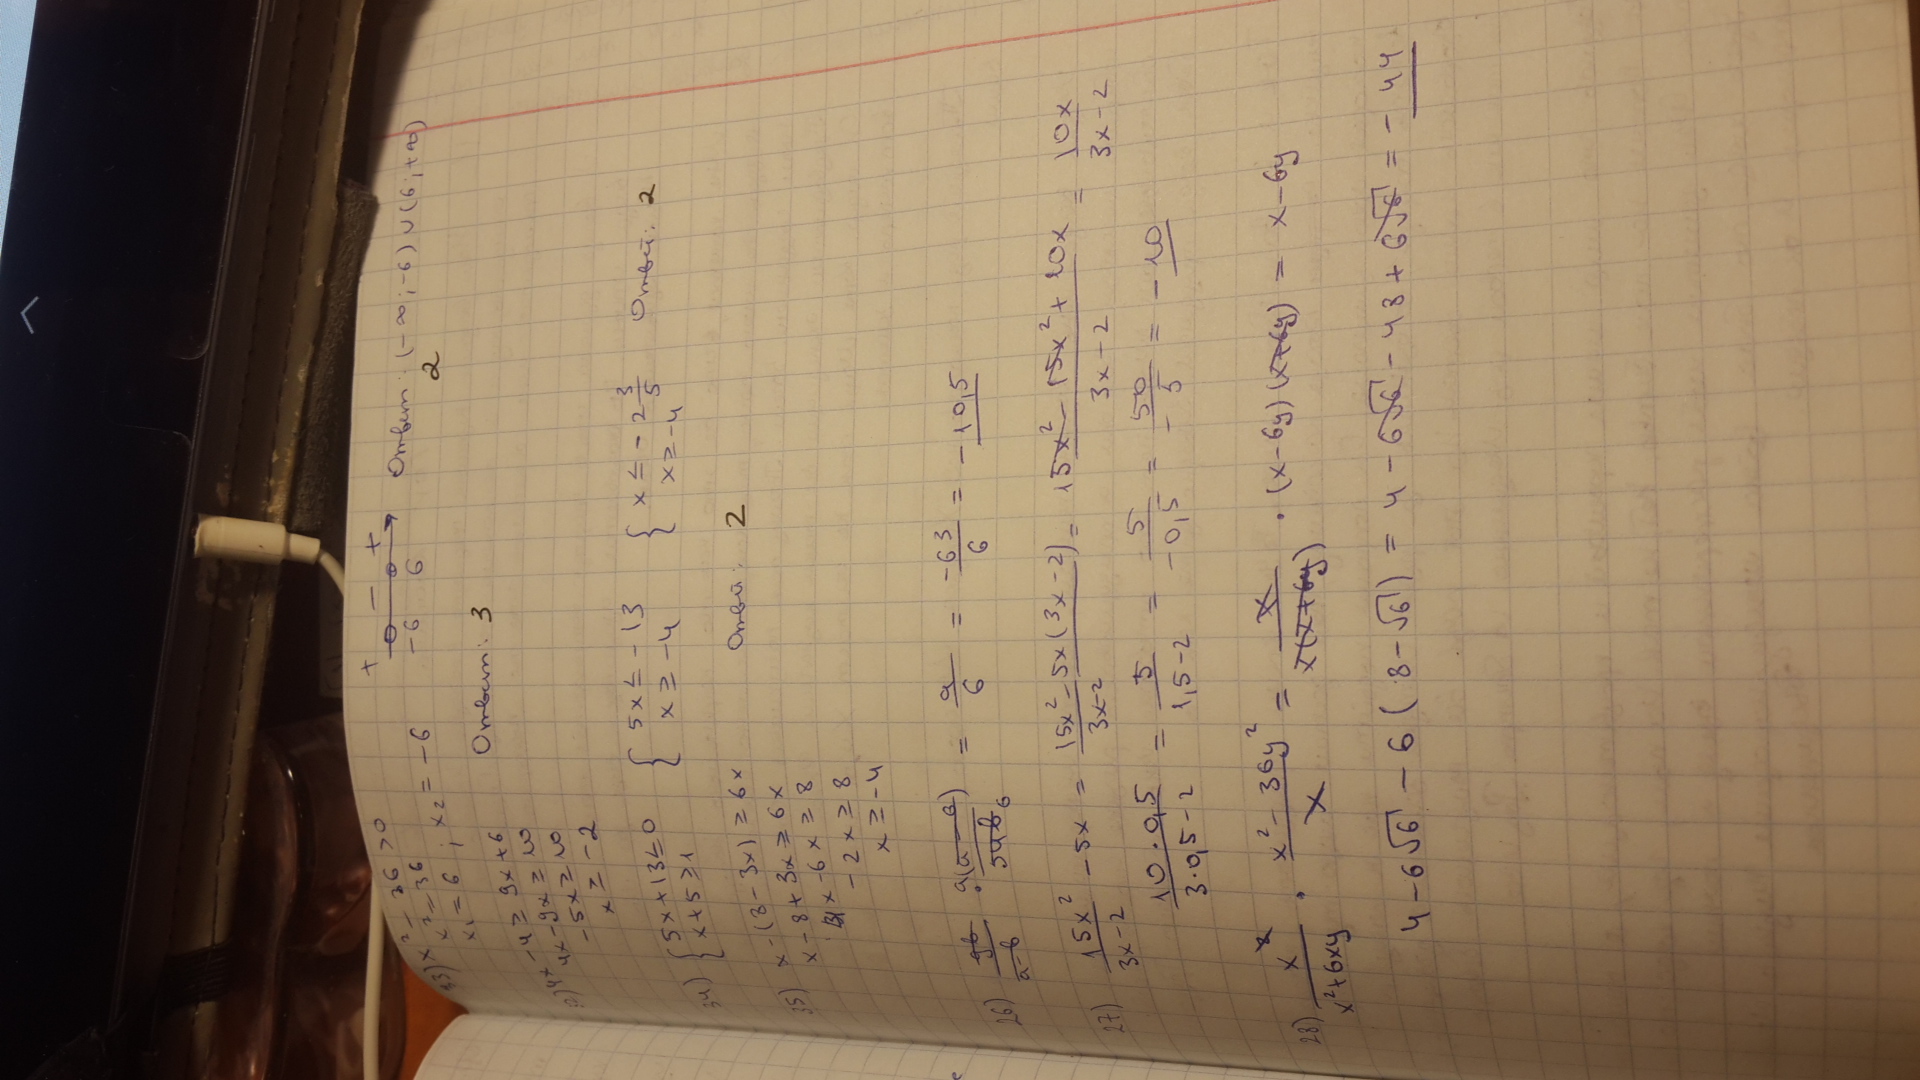 33) x² - 36 > 0
x² = 36
x₁ = 6 ; x₂ = -6
+ - +
-6 6
Ответ: (-∞; -6) ∪ (6; +∞)
2
4x - 4 ≥ 9x + 6
4x - 9x ≥ 10
-5x ≥ 10
x ≥ -2
Ответ: 3
34) { 5x + 13 ≤ 0 { 5x ≤ -13 { x ≤ -2 3/5
x + 5 ≥ 1 x ≥ -4 x ≥ -4 Ответ: 2
35) x - (8 - 3x) ≥ 6x
x - 8 + 3x ≥ 6x
x - 6x ≥ 8
-2x ≥ 8
x ≥ -4
Ответ: 2
26) 9b/(a-b) · a(a-b)/54b = a/6 = -63/6 = -10,5
27) 15x²/(3x-2) - 5x = (15x² - 5x(3x-2))/(3x-2) = (15x² - 15x² + 10x)/(3x-2) = 10x/(3x-2)
(10·0,5)/(3·0,5-2) = 5/(1,5-2) = 5/(-0,5) = -50/5 = -10
28) x/(x²+6xy) · (x²-36y²)/x = x/(x(x+6y)) · (x-6y)(x+6y) = x-6y
4-6√6 - 6(8-√6) = 4 - 6√6 - 48 + 6√6 = -44